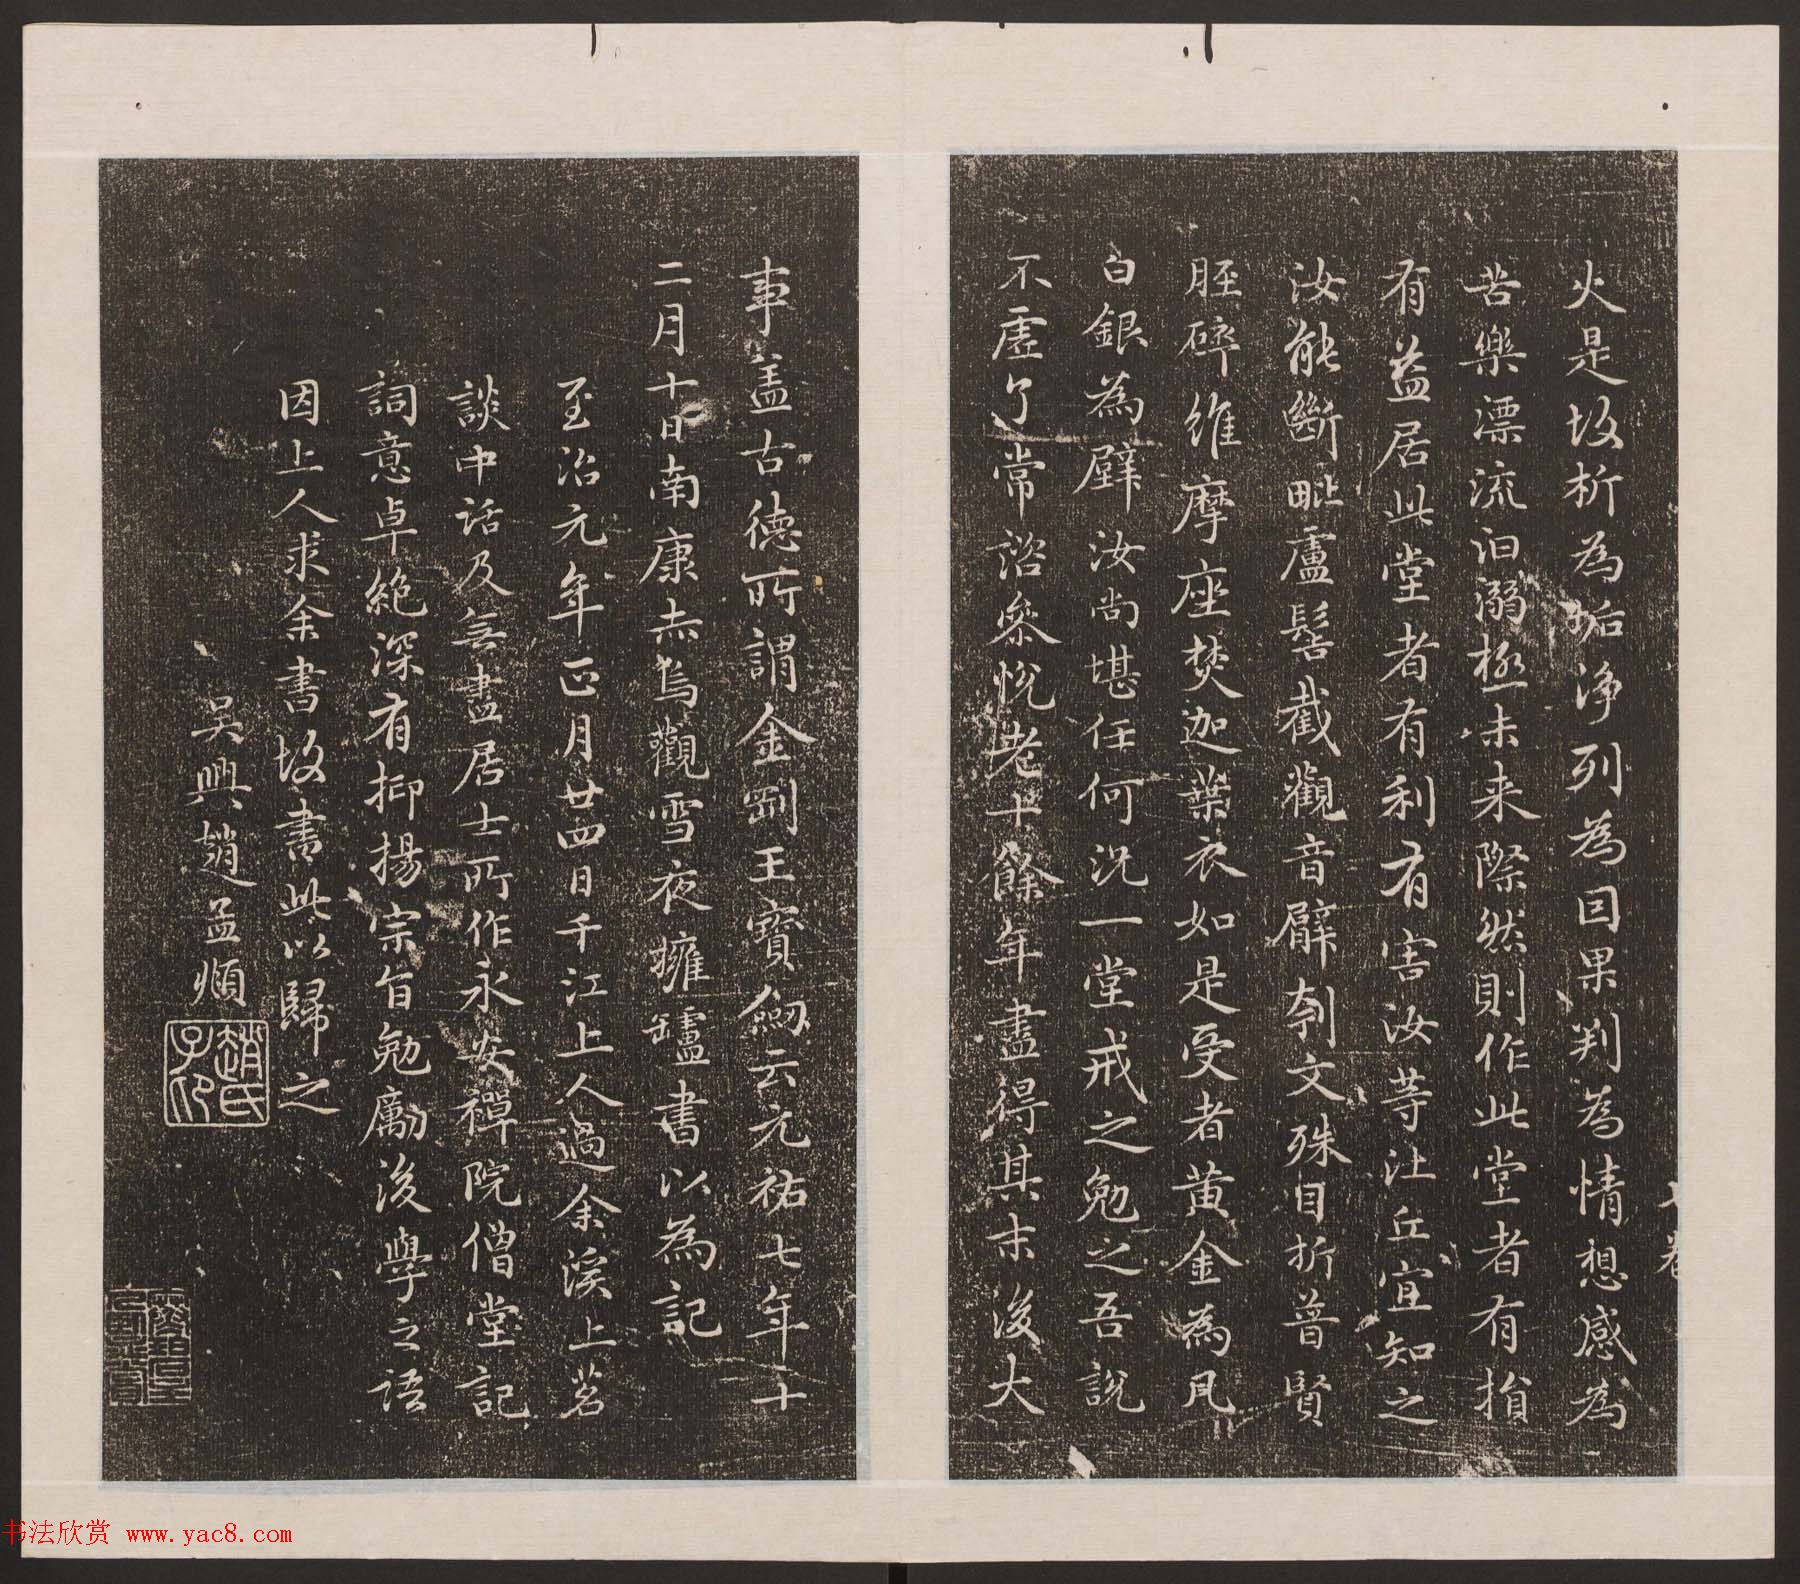 火是故析為垢淨列為因果判為情想感為
苦樂漂流汩溺極未來際然則作此堂者有損
有益居此堂者有利有害汝等比丘宜知之
汝能斷毗盧髻截觀音臂刳文殊目折普賢
脛碎維摩座焚迦葉衣如是受者黃金為凡
白銀為壁汝尚堪任何況一堂戒之勉之吾說
不虛了常諮參悅老十餘年盡得其末後大
事蓋古德所謂金剛王寶劔云元祐七年十
二月十日南康赤烏觀雪夜擁鑪書以為記
至治元年正月廿四日千江上人過余溪上茗
談中話及無盡居士所作永安禪院僧堂記
詞意卓絕深有抑揚宗旨勉勵後學之語
因上人求余書故書此以歸之
吳興趙孟頫
趙氏子印
书法欣赏 www.yac8.com